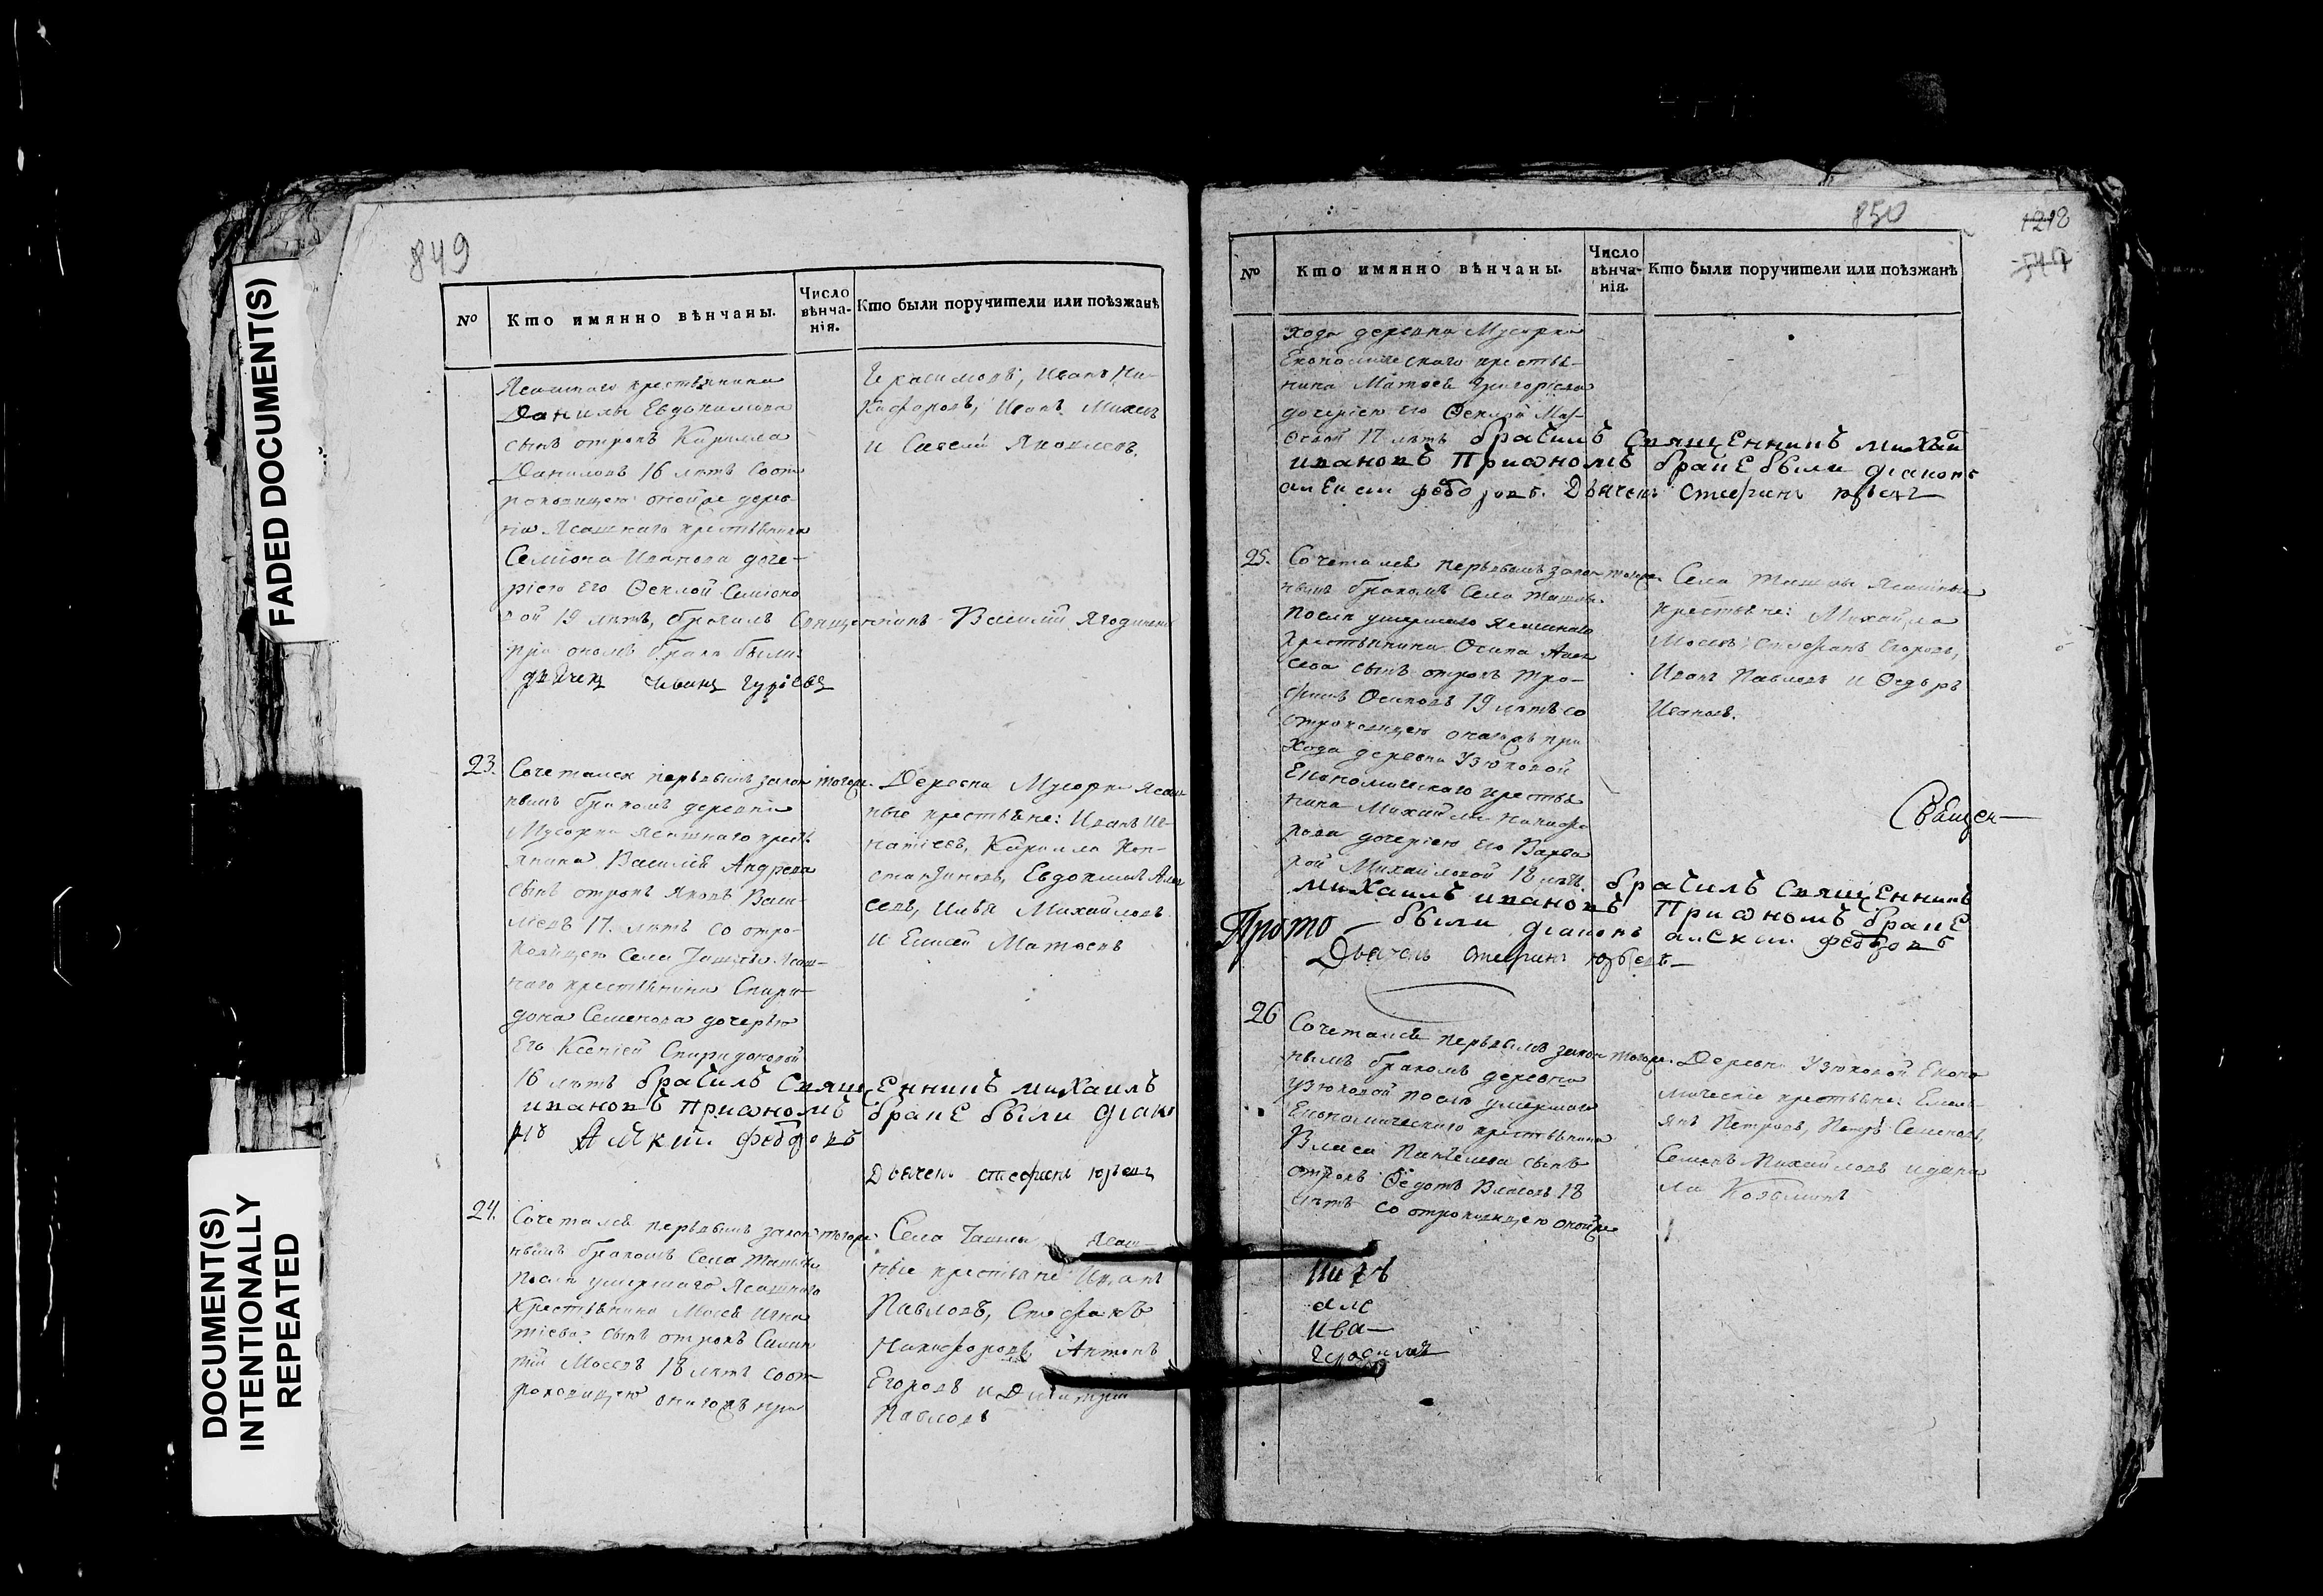 FADED DOCUMENT(S)
DOCUMENT(S)
INTENTIONALLY
REPEATED
849
№
Кто имянно вѣнчаны.
Число
вѣнча-
нія.
Кто были поручители или поѣзжанѣ
Ясашнаго крестьянина
Данилы Евдокимова
сынъ отрокъ Кирилла
Даниловъ 16 лѣтъ со от
роковицею оной же дерев
ни Ясашнаго крестьянина
Семіона Иванова доче-
рію его Ѳеклой Семіоно
вой 19 лѣтъ, брачилъ Священникъ Василий
при ономъ браке были
дьячекъ Иванъ Гурiевъ
Герасимовъ, Иванъ Ни-
кифоровъ, Иванъ
и Савелій Яковлевъ.
23.
Сочетался первымъ закон
нымъ бракомъ деревни
Мусорки ясашнаго крест
янина Василія Андреева
сынъ отрокъ Яковъ Васи-
льевъ 17. лѣтъ со отро-
ковицею села Ташлы Ясаш-
наго крестьянина Спири-
дона Семенова дочерью
Его Ксеніей Спиридоновой
16 лѣтъ брачилъ Священникъ михаилъ
ивановъ При ономъ браке были діако
нъ Алѣксѣй федоровъ
Дьячекъ стефанъ юрьевъ
Деревни Мусорки Ясаш
ные крестьяне: Иванъ Иг-
натіевъ, Кирилла Кон-
стантиновъ, Евдокимъ Алек
сеевъ, Илья Михайловъ
и Елисей Матвеевъ
24.
Сочетался первымъ закон
нымъ бракомъ села Ташлы
после умершаго Ясашнаго
Крестьянина Мосея Игна
тіева сынъ отрокъ
Мосеевъ 18 лѣтъ со от-
роковицею оного жъ при
Села Ташлы Ясаш-
ные крестьяне Иванъ
Павловъ, Стефанъ
Никифоровъ Антонъ
Егоровъ и Дмитрій
Павловъ
850
1218
№
Кто имянно вѣнчаны.
Число
вѣнча-
нія.
Кто были поручители или поѣзжанѣ
хода деревни Мусорки
Економическаго крестья-
нина Матвея Григорьева
дочерією его Ѳеклой Мат-
веевой 17 лѣтъ брачилъ Священникъ михаил
ивановъ При ономъ браке были діаконъ
алексѣй федоровъ. Дьячекъ стефанъ юрьевъ
25.
Сочетался первымъ закон
нымъ бракомъ села Ташлы
после умершаго ясашнаго
крестьянина Осипа Алек
сеева сынъ отрокъ Тро-
фимъ Осиповъ 19 лѣтъ со
отроковицею оного жъ при
хода деревни Узюковой
Економическаго крестья
нина Михайлы Никифо
рова дочерію его Варва
рой Михайловой 18 лѣтъ. брачилъ Священникъ
михаилъ ивановъ При ономъ браке
были діаконъ алексѣй федоровъ
Дьячекъ стефанъ юрьевъ
Села Ташлы Ясашные
крестьяне: Михайла
Мосеевъ; Стефанъ Егоровъ,
Иванъ Павловъ и Ѳедоръ
Ивановъ.
Священ
Прото
26
Сочетался первымъ закон
нымъ бракомъ деревни
Узюковой после умершаго
Економическаго крестьянина
Власа Пантелеева сынъ
отрокъ Ѳедотъ Власовъ 18
лѣтъ со отроковицею оной же
Деревни Узюковой Еконо
мическіе крестьяне: Емель
янъ Петровъ, Петръ Семеновъ,
Семенъ Михайловъ и
але
ива